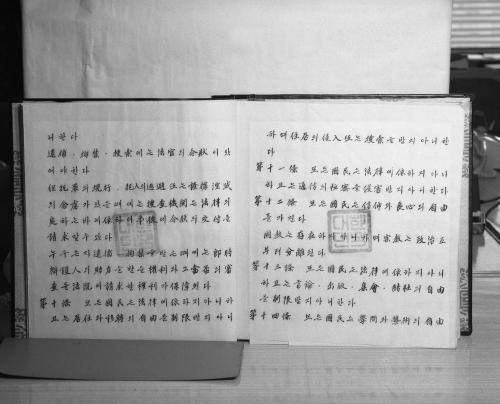 니한다
逮捕、拘禁、搜索에는 法官의 令狀이 있
어야한다
但 犯罪의 現行、犯人의 逃避 又는 證據湮滅
의 念慮가 있을때에는 搜査機關은 法律의
定하는 바에 依하여 事後에 令狀의 交付를
請求할수있다
누구든지 逮捕、拘禁을 받은 때에는 卽時
辯護人의 助力을 받을 權利와 그 當否의 審
査를 法院에 請求할 權利가 保障된다
第十條 모든 國民은 法律에 依하지 아니하
고는 居住와 移轉의 自由를 制限받지 아니하
하며 住居의 侵入 又는 搜索을 받지 아니한
다
第十一條 모든 國民은 法律에 依하지 아니
하고는 通信의 秘密을 侵害받지 아니한다
第十二條 모든 國民은 信仰과 良心의 自由
를 가진다
國敎는 存在하지 아니하며 宗敎는 政治로
부터 分離된다
第十三條 모든 國民은 法律에 依하지 아니
하고는 言論、出版、集會、結社의 自由
를 制限받지 아니한다
第十四條 모든 國民은 學問과 藝術의 自由